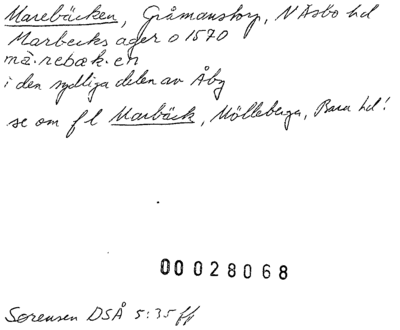 Marebäcken, Gråmanstorp, N Åsbo hd
Marbecks ager o 1570
mà·rebæk·en
i den sydliga delen av Åby
se om fl Marbäck, Mölleberga, Bara hd!
00028068
Sørensen DSÅ 5:35 ff